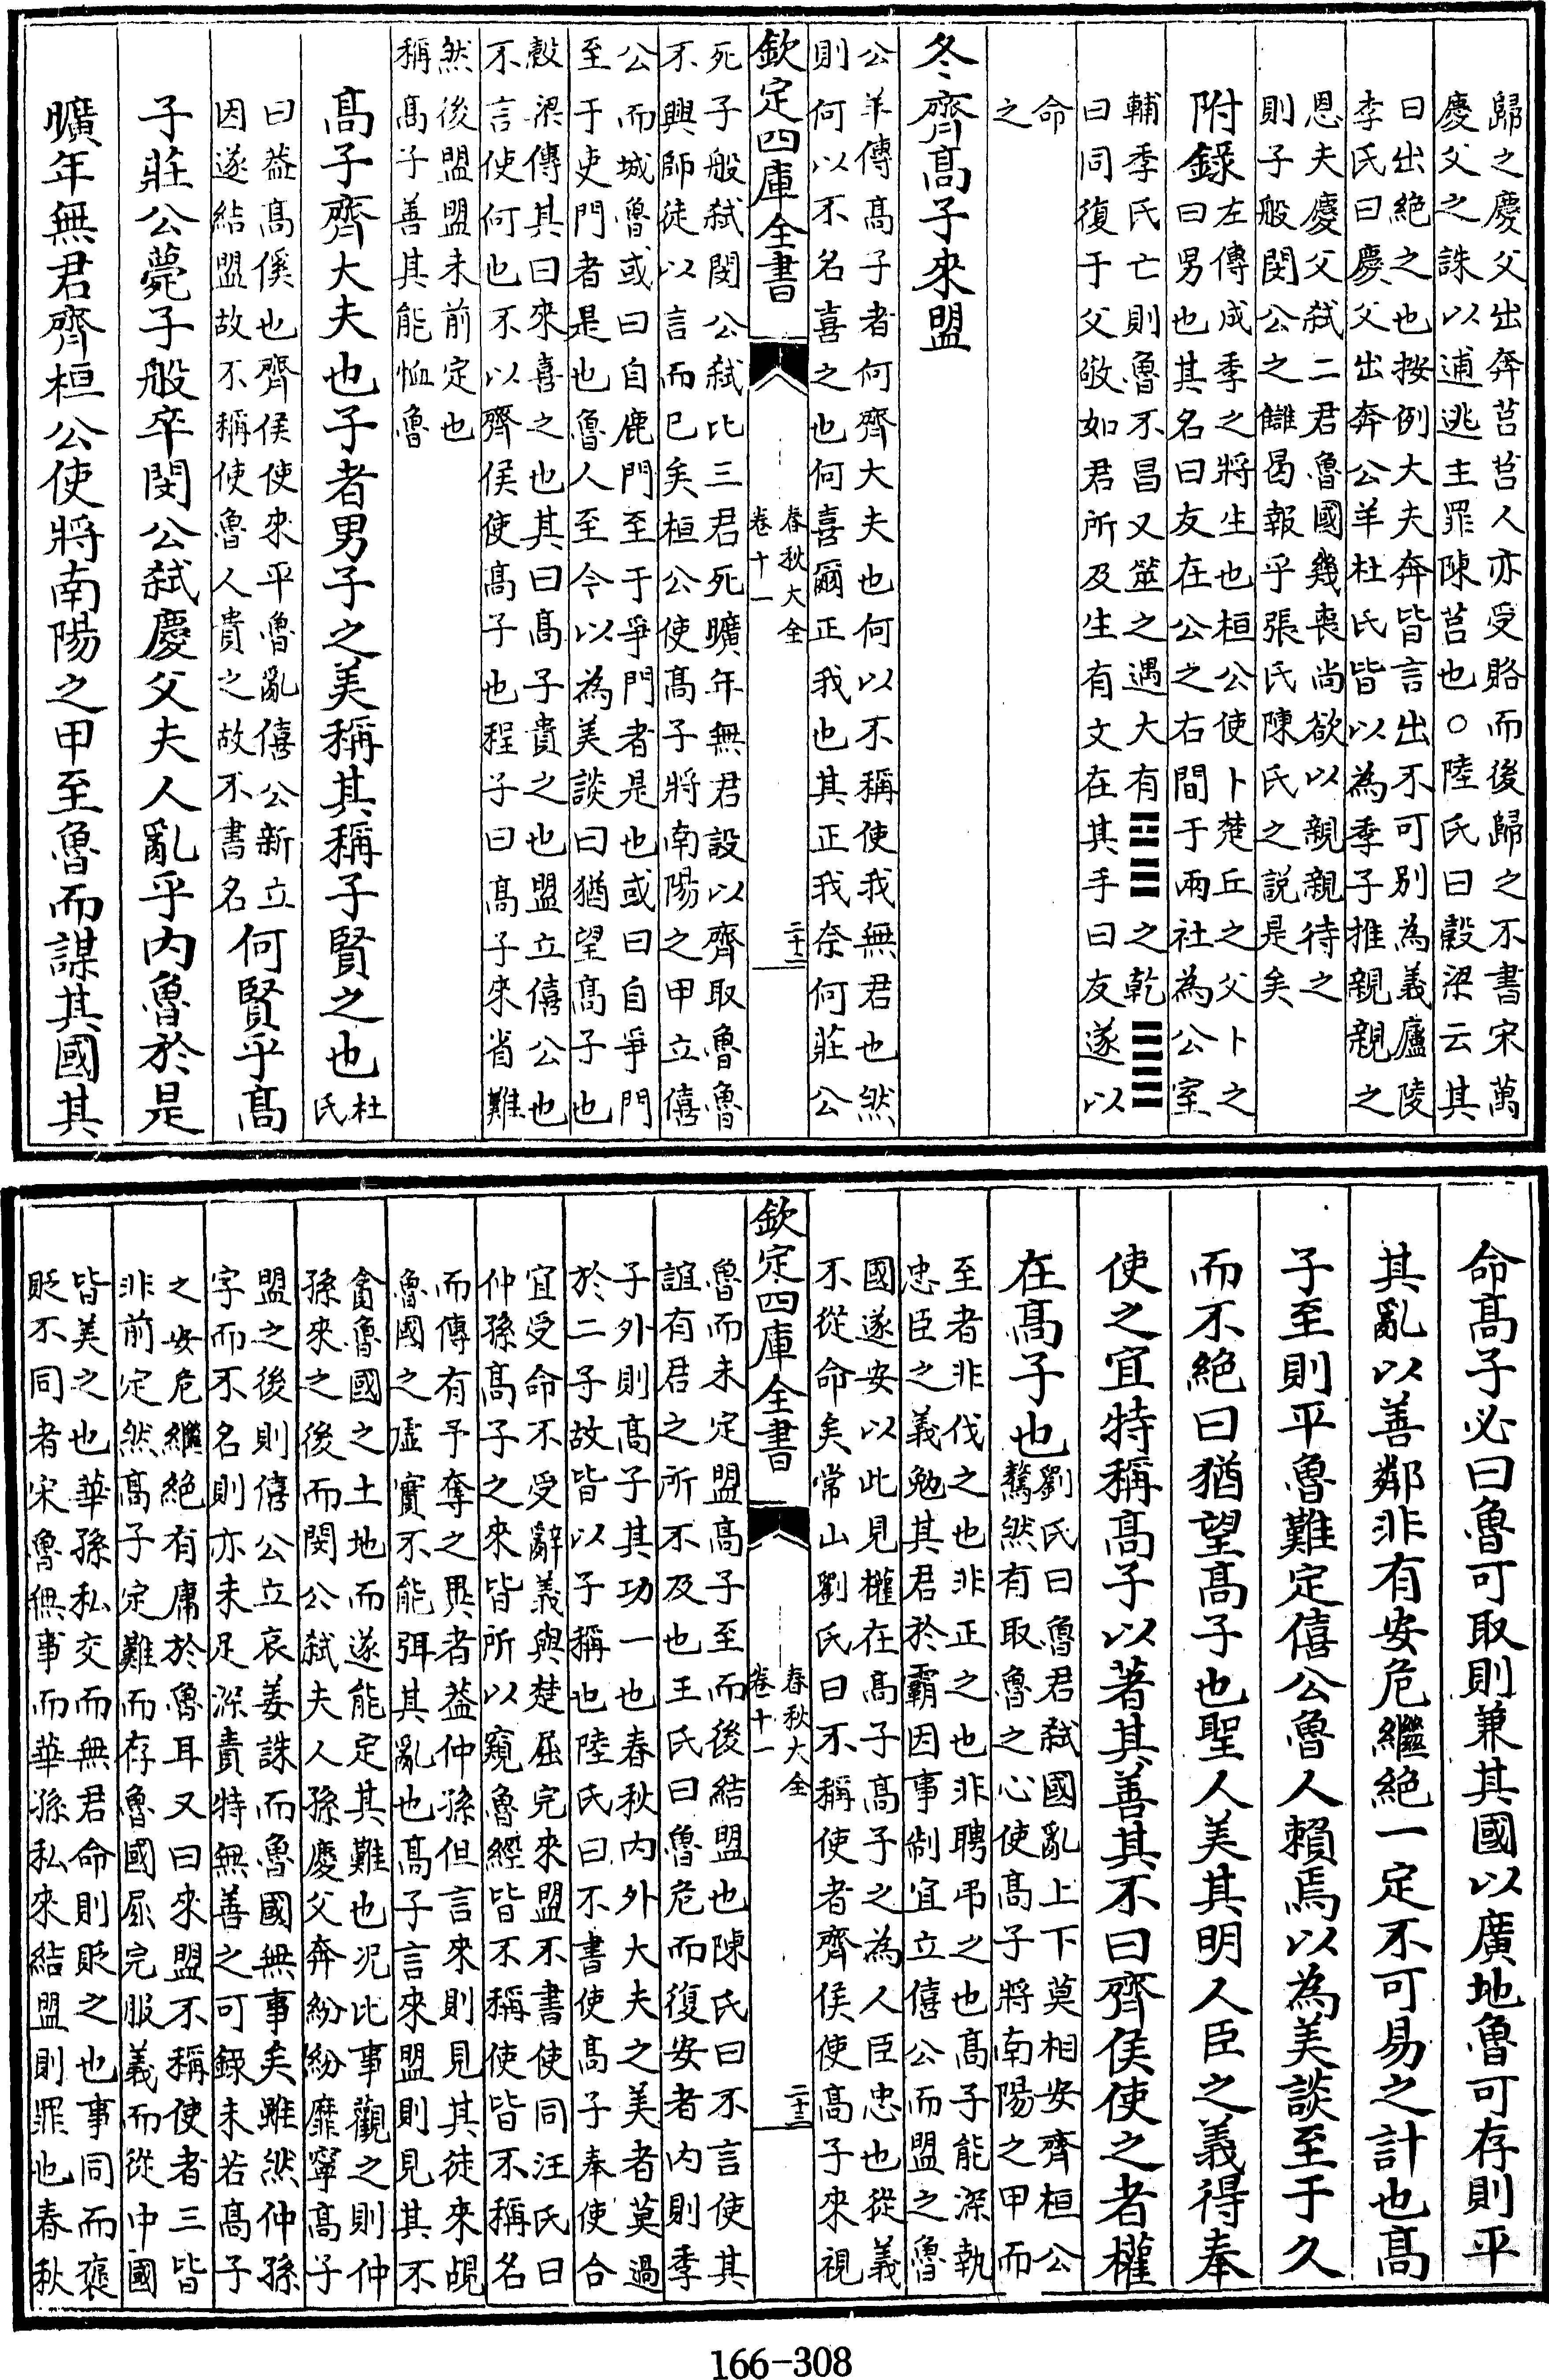 歸之慶父出奔莒莒人亦受賂而後歸之不書宋萬
慶父之誅以逋逃主罪陳莒也○陸氏曰穀梁云其
曰出絶之也按例大夫奔皆言出不可别為義廬陵
李氏曰慶父出奔公羊杜氏皆以為季子推親親之
恩夫慶父弑二君魯國幾喪尚欲以親親待之
則子般閔公之讎曷報乎張氏陳氏之説是矣
附錄左傳成季之將生也桓公使卜楚丘之父卜之
曰男也其名曰友在公之右間于兩社為公室
輔季氏亡則魯不昌又筮之遇大有䷍之乾䷀
曰同復于父敬如君所及生有文在其手曰友遂以
命
之
冬齊髙子來盟
公羊傳髙子者何齊大夫也何以不稱使我無君也然
則何以不名喜之也何喜爾正我也其正我奈何莊公
欽定四庫全書
春秋大全
卷十一
二十二
死子般弑閔公弑比三君死曠年無君設以齊取魯魯
不興師徒以言而已矣桓公使髙子將南陽之甲立僖
公而城魯或曰自鹿門至于爭門者是也或曰自爭門
至于吏門者是也魯人至今以為美談曰猶望髙子也
穀梁傳其曰來喜之也其曰髙子貴之也盟立僖公也
不言使何也不以齊侯使髙子也程子曰髙子來省難
然後盟盟未前定也
稱髙子善其能恤魯
髙子齊大夫也子者男子之美稱其稱子賢之也杜
氏
曰葢髙傒也齊侯使來平魯亂僖公新立
因遂結盟故不稱使魯人貴之故不書名何賢乎髙
子莊公薨子般卒閔公弑慶父夫人亂乎内魯於是
曠年無君齊桓公使將南陽之甲至魯而謀其國其
命髙子必曰魯可取則兼其國以廣地魯可存則平
其亂以善鄰非有安危繼絶一定不可易之計也髙
子至則平魯難定僖公魯人賴焉以為美談至于久
而不絶曰猶望髙子也聖人美其明人臣之義得奉
使之宜特稱髙子以著其善其不曰齊侯使之者權
在髙子也劉氏曰魯君弑國亂上下莫相安齊桓公
驁然有取魯之心使髙子將南陽之甲而
至者非伐之也非正之也非聘弔之也髙子能深執
忠臣之義勉其君於霸因事制宜立僖公而盟之魯
國遂安以此見權在髙子髙子之為人臣忠也從義
不從命矣常山劉氏曰不稱使者齊侯使髙子來視
欽定四庫全書
春秋大全
卷十一
二十三
魯而未定盟髙子至而後結盟也陳氏曰不言使其
誼有君之所不及也王氏曰魯危而復安者内則季
子外則髙子其功一也春秋内外大夫之美者莫過
於二子故皆以子稱也陸氏曰不書使髙子奉使合
宜受命不受辭義與楚屈完來盟不書使同汪氏曰
仲孫髙子之來皆所以窺魯經皆不稱使皆不稱名
而傳有予奪之異者葢仲孫但言來則見其徒來覘
魯國之虛實不能弭其亂也髙子言來盟則見其不
貪魯國之土地而遂能定其難也況比事觀之則仲
孫來之後而閔公弑夫人孫慶父奔紛紛靡寧髙子
盟之後則僖公立哀姜誅而魯國無事矣雖然仲孫
字而不名則亦未足深責特無善之可録未若髙子
之安危繼絶有庸於魯耳又曰來盟不稱使者三皆
非前定然髙子定難而存魯國屈完服義而從中國
皆美之也華孫私交而無君命則貶之也事同而褒
貶不同者宋魯無事而華孫私來結盟則罪也春秋
166-308